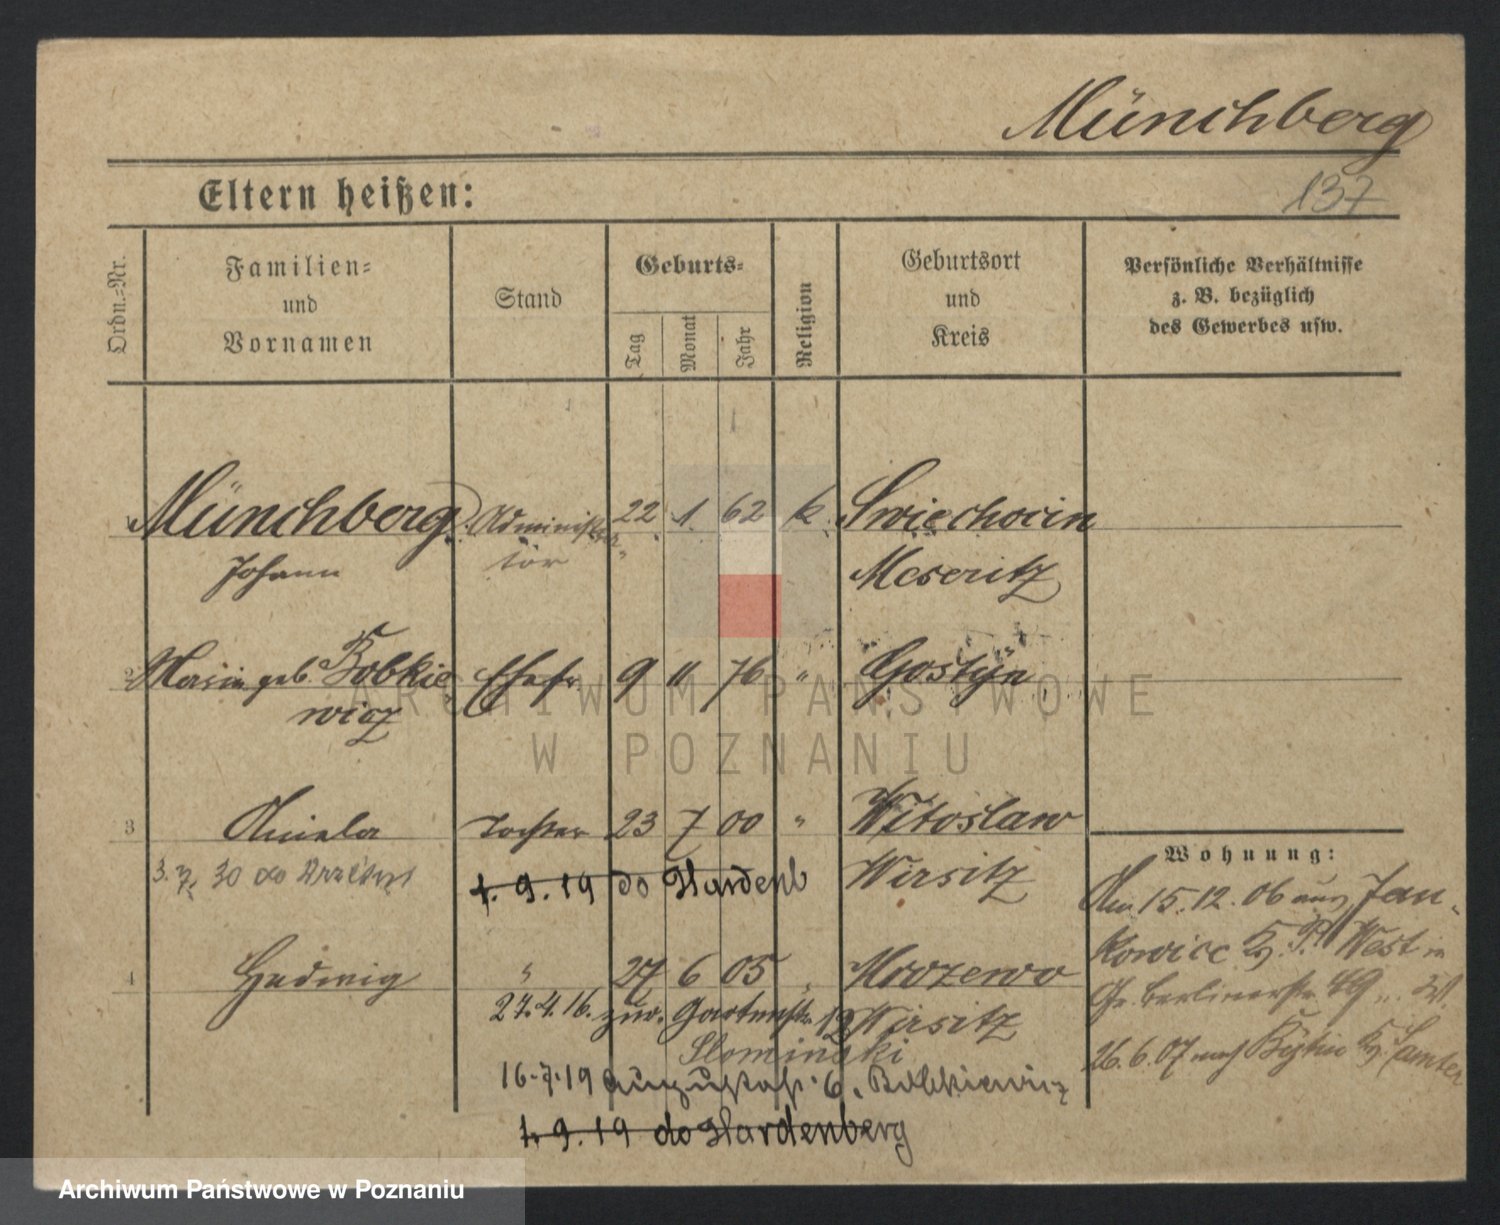 Münchberg
137
Eltern heißen:
Ordn.-Nr.
Familien-
und
Vornamen
Stand
Geburts-
Tag
Monat
Jahr
Religion
Geburtsort
und
Kreis
Persönliche Verhältnisse
z. B. bezüglich
des Gewerbes usw.
1 Münchberg Administra- 22 1 62 k. Swiechocin
Johann tor Meseritz
2 Maria geb. Bobkie Ehefr. 9 11 76 " Gostyn
wicz
3 Aniela Tochter 23 7 00 " Witoslaw
3.7. 30 do 1. 9. 19 do Hardenb Wirsitz
4 Hedwig " 27 6 05 " Mrozewo
27.4.16. zur. Gartenstr. 12 Wirsitz
Slominski
16-7-19 Augustastr. 6. Bobkiewicz
1. 9. 19 do Hardenberg
Wohnung:
Am 15.12.06 aus Jan-
kowice Kr. P. West in
Gr. Berlinerstr. 49
26.6.07 nach Kr. Samter
ARCHIWUM PAŃSTWOWE
W POZNANIU
Archiwum Państwowe w Poznaniu